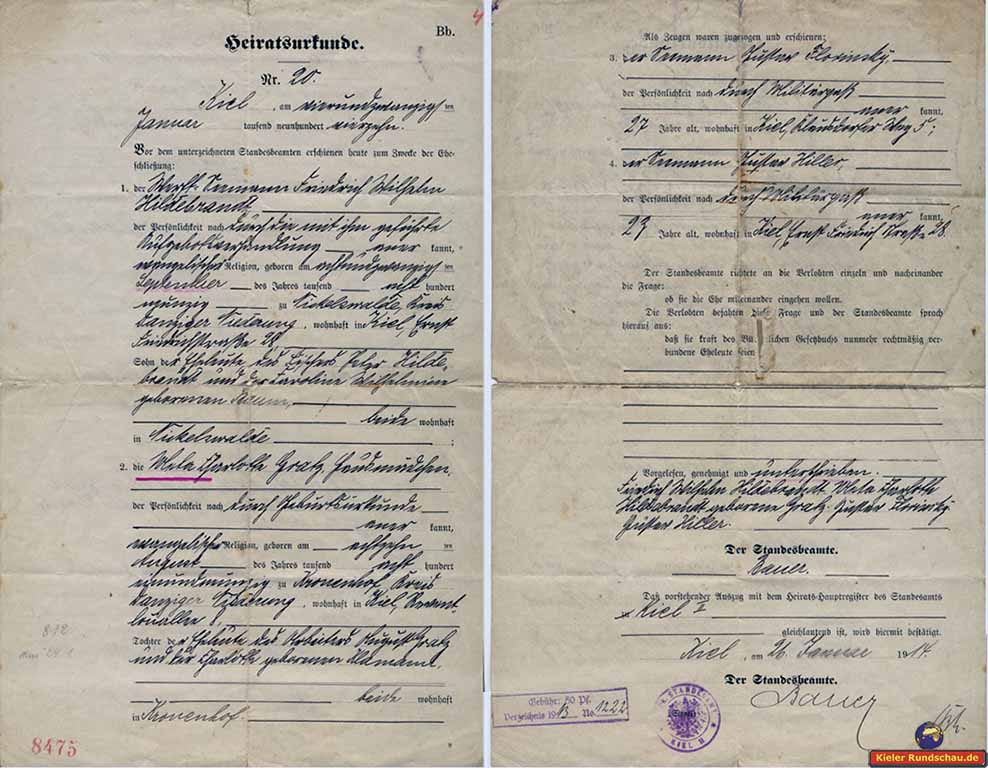 4
Bb.
Heiratsurkunde.
Nr. 20.
Kiel, am vierundzwanzigsten
Januar tausend neunhundert vierzehn.
Vor dem unterzeichneten Standesbeamten erschienen heute zum Zwecke der Ehe-
schließung:
1. der Werft-Seemann Friedrich Wilhelm
Hildebrandt
der Persönlichkeit nach durch die mit ihm geführte
Aufgebotsverhandlung aner kannt,
evangelischer Religion, geboren am achtundzwanzigsten
September des Jahres tausend acht hundert
neunzig zu Nickelswalde, Kreis
Danziger Niederung, wohnhaft in Kiel, Ernst
Friedrichstraße 28,
Sohn der Eheleute des Fischers Peter Hilde-
brandt und der Caroline Wilhelmine
geborenen
beide wohnhaft
in Nickelswalde;
2. die Meta Charlotte Gratz, Hausmädchen,
der Persönlichkeit nach durch Geburtsurkunde
aner kannt,
evangelischer Religion, geboren am achtzehnten
August des Jahres tausend acht hundert
einundneunzig zu Kronenhof, Kreis
Danziger Niederung, wohnhaft in Kiel,
Tochter der Eheleute des Arbeiters August Gratz
und der Charlotte geborenen
beide wohnhaft
in Kronenhof.
8475
Als Zeugen waren zugezogen und erschienen:
3. der Seemann Gustav Florinsky,
der Persönlichkeit nach durch Militärpaß
aner kannt,
27 Jahre alt, wohnhaft in Kiel, Weg 5;
4. der Seemann Gustav Hiller,
der Persönlichkeit nach durch Militärpaß
aner kannt,
Jahre alt, wohnhaft in Kiel, Ernst Friedrich Straße 28.
Der Standesbeamte richtete an die Verlobten einzeln und nacheinander
die Frage:
ob sie die Ehe miteinander eingehen wollen.
Die Verlobten bejahten diese Frage und der Standesbeamte sprach
hierauf aus:
daß sie kraft des Bürgerlichen Gesetzbuchs nunmehr rechtmäßig ver-
bundene Eheleute seien
Vorgelesen, genehmigt und unterschrieben.
Friedrich Wilhelm Hildebrandt. Meta Charlotte
Hildebrandt geborene Gratz. Gustav Florinsky
Gustav Hiller.
Der Standesbeamte.
Bauer.
Daß vorstehender Auszug mit dem Heirats-Hauptregister des Standesamts
Kiel II
gleichlautend ist, wird hiermit bestätigt.
Kiel, am 26. Januar 1914.
Der Standesbeamte.
Bauer
Gebühr: 50 Pf.
Verzeichnis 1913 No. 1222
STANDESAMT
KIEL II
Kieler Rundschau.de